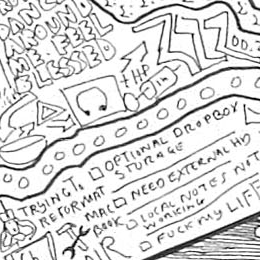 DANC
AROUND.
ME FEEL
BLESSED.
ZZZ
THP
TRYING TO
REFORMAT
MAC
BOOK
AIR
OPTIONAL DROPBOX
STORAGE
NEED EXTERNAL HD
LOCAL NOTES NOT
WORKING
FUCK MY LIFE